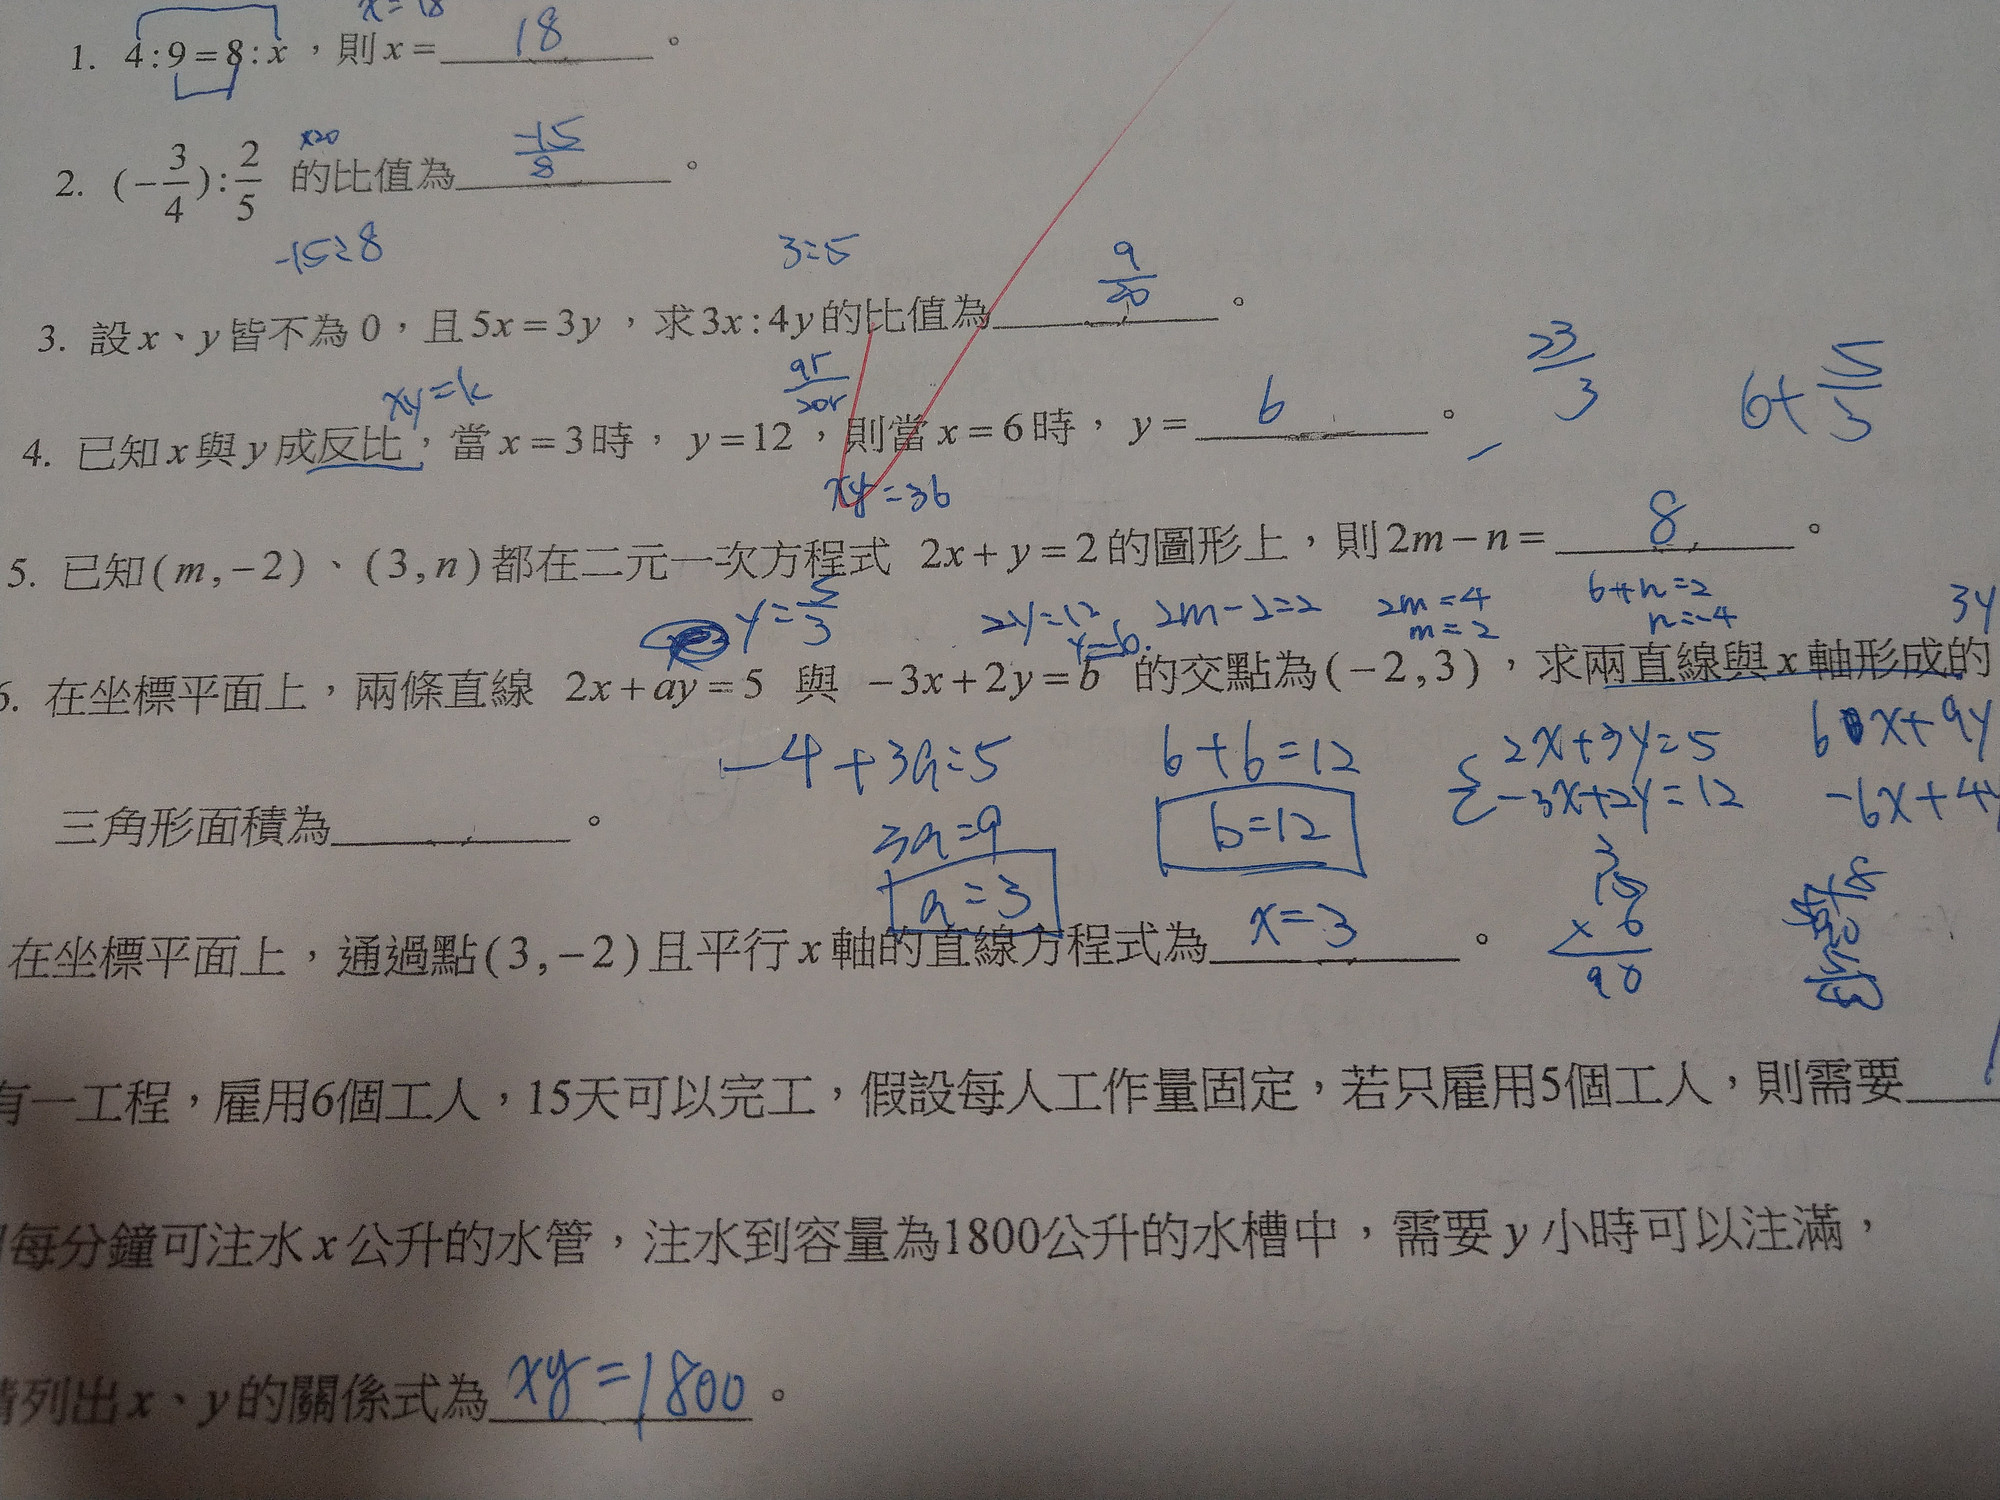 x=18
1. 4:9=8:x，則x= 18 。
×20
2. (-3/4):2/5 的比值為 -15/8 。
-15:8
3:5
3. 設x、y皆不為0，且5x=3y，求3x:4y的比值為 9/20 。
xy=k
9r/20r
23/3
6+5/3
4. 已知x與y成反比，當x=3時，y=12，則當x=6時，y= 6 。
xy=36
5. 已知(m,-2)、(3,n)都在二元一次方程式 2x+y=2的圖形上，則2m-n= 8 。
y=5/3 2y=12 2m-2=2 2m=4 6+n=2 3y
y=6 m=2 n=-4
6. 在坐標平面上，兩條直線 2x+ay=5 與 -3x+2y=b 的交點為(-2,3)，求兩直線與x軸形成的
-4+3a=5 6+6=12 2x+3y=5 6x+9y
3a=9 b=12 -3x+2y=12 -6x+4y
三角形面積為 。
a=3
15
×6
90
在坐標平面上，通過點(3,-2)且平行x軸的直線方程式為 x=3 。
有一工程，雇用6個工人，15天可以完工，假設每人工作量固定，若只雇用5個工人，則需要
每分鐘可注水x公升的水管，注水到容量為1800公升的水槽中，需要y小時可以注滿，
列出x、y的關係式為 xy=1800 。